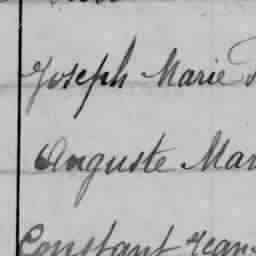 Joseph Marie
Auguste Mar
Constant Jean